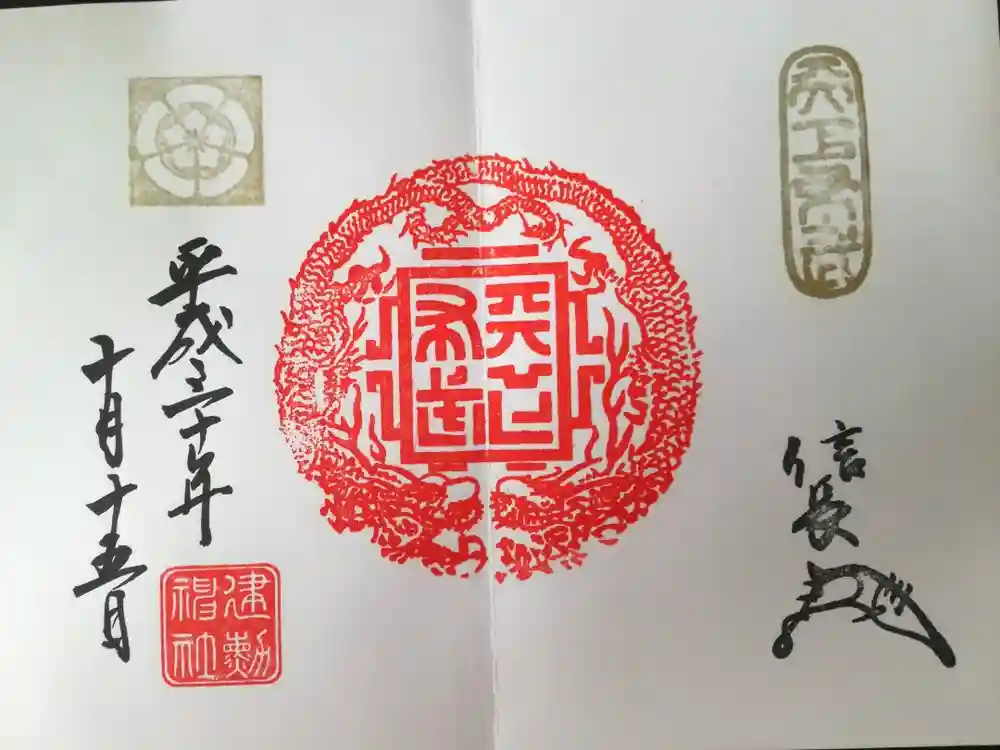 天下布武
信長
天下布武
平成三十年
十月十五日
建勲
神社